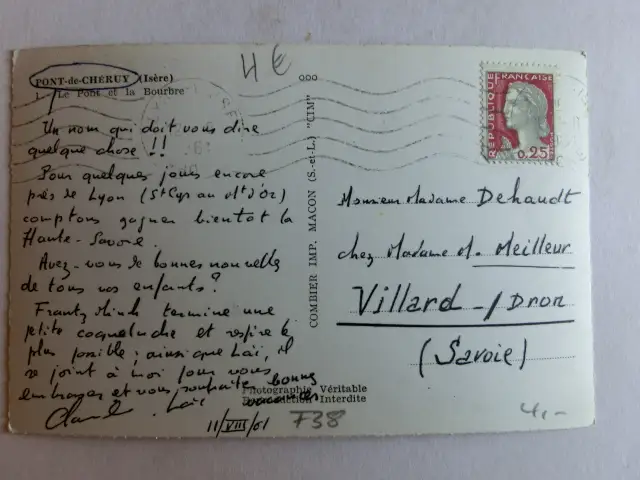 PONT-de-CHÉRUY (Isère)
Le Pont et la Bourbre
4€
Un nom qui doit vous dire
quelque chose !!
Pour quelques jours encore
près de Lyon (St Cyr au Mt d'Or)
comptons gagner bientôt la
Haute-Savoie.
Avez-vous de bonnes nouvelles
de tous vos enfants?
termine une
petite coqueluche et respire le
plus possible; ainsi que il
se joint à moi pour vous
embrasser et vous souhaite bonnes
vacances
11/VIII/61
Photographie Véritable
Interdite
F38
COMBIER IMP. MACON (S.-et-L.) "CIM"
RÉPUBLIQUE FRANÇAISE
0,25
Monsieur Madame Dehaudt
chez Madame M. Meilleur
Villard-/Dron
(Savoie)
4,-